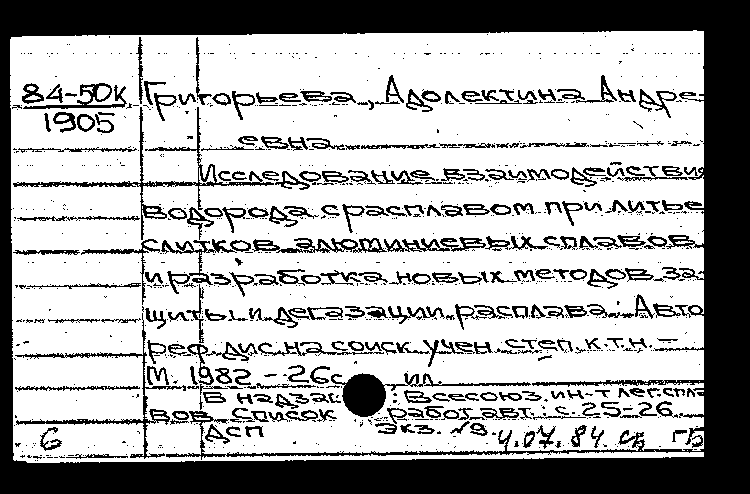 84-50к Григорьева, Адолектина Андре-
1905
евна
Исследование взаимодействия
водорода с расплавом при литье
слитков алюминиевых сплавов
и разработка новых методов за-
щиты и дегазации расплава: Авто
реф. дис. на соиск. учен. степ. к.т.н. –
М. 1982. – 26с ил.
В надзаг : Всесоюз. ин-т лег. спла
вов Список работ авт.: с. 25-26
ДСП Экз. №9. 4.07.84. сб ГБ
6